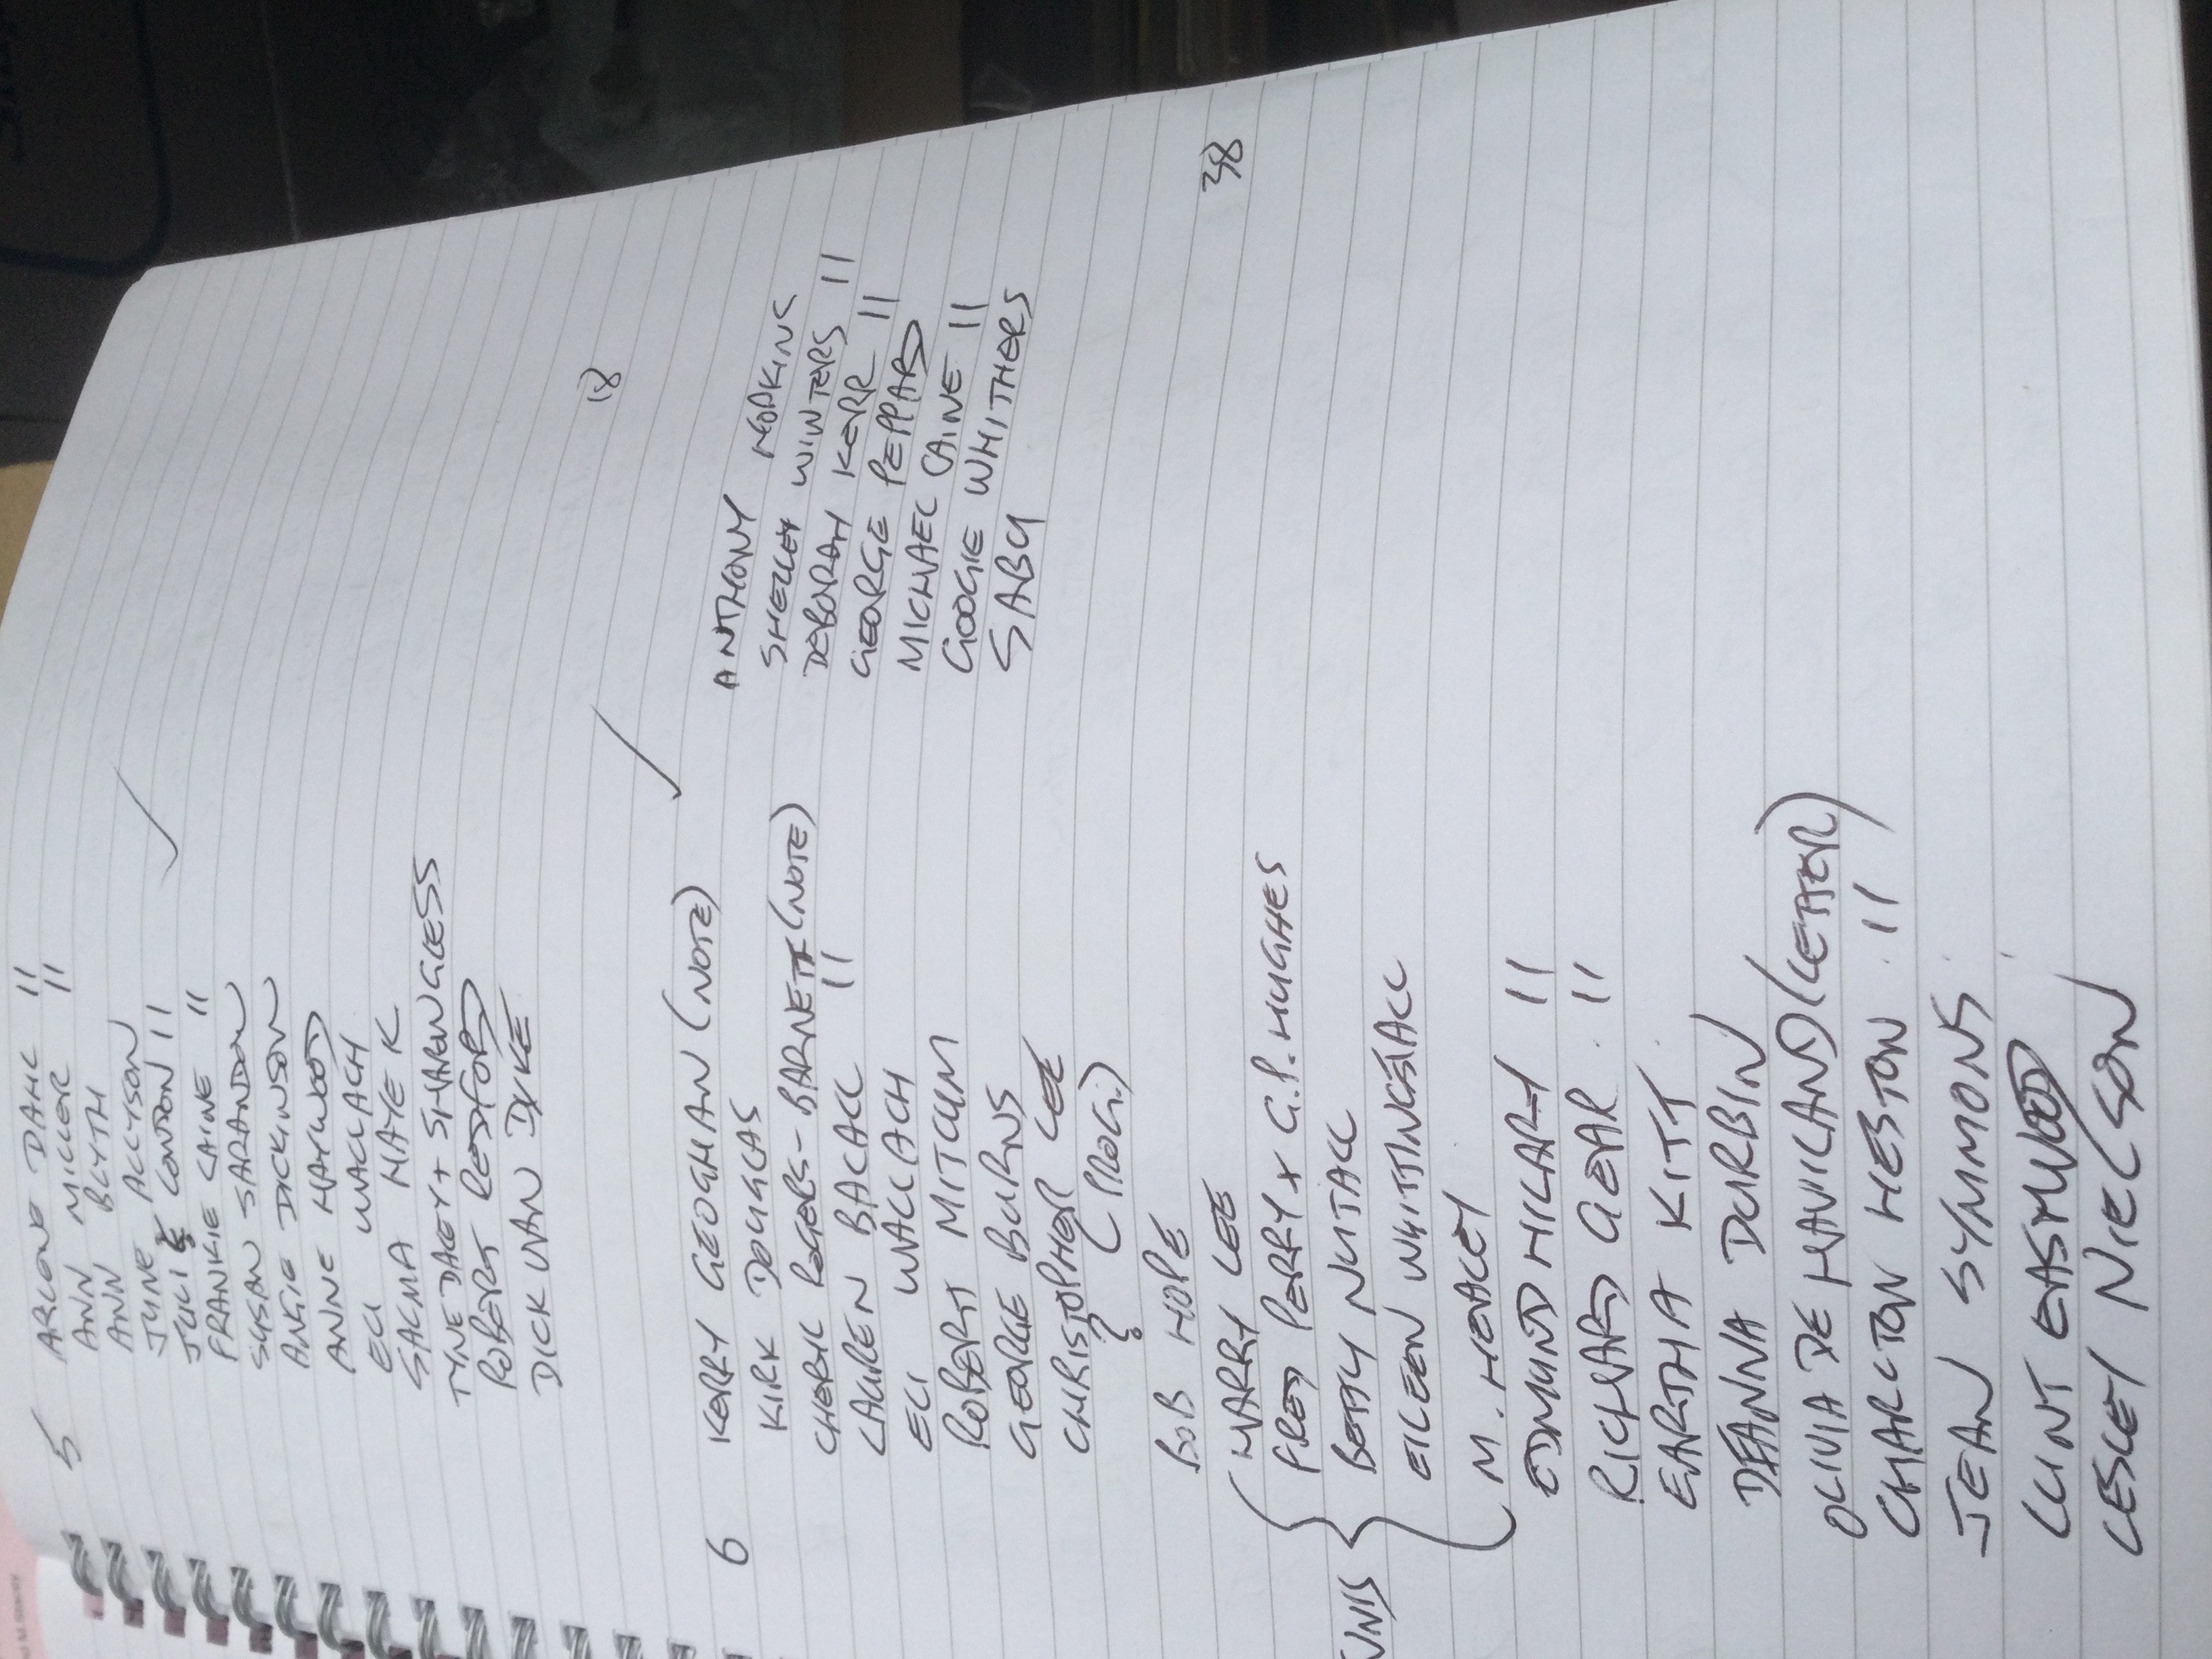 5 ARLENE DAHL 11
ANN MILLER 11
ANN BLYTH
JUNE ALLYSON
JULIE LONDON 11
FRANKIE LAINE 11
SUSAN SARANDON
ANGIE DICKINSON
ANNE HAYWOOD
ELI WALLACH
SALMA HAYEK
TYNE DALEY + SHARON GLESS
ROBERT REDFORD
DICK VAN DYKE
18
6 KERRY GEOGHAN (NOTE)
KIRK DOUGLAS
CHERYL ROGERS-BARNETT (NOTE)
LAUREN BACALL 11
ELI WALLACH
ROBERT MITCUM
GEORGE BURNS
CHRISTOPHER LEE
? (PROG.)
BOB HOPE
ANTHONY HOPKINS
SHELLEY WINTERS
DEBORAH KERR 11
GEORGE PEPPARD 11
MICHAEL CAINE
GOOGIE WHITHERS 11
SABU
38
HARRY LEE
FRED PERRY + G.P. HUGHES
BETTY NUTALL
EILEEN WHITTINGSTALL
M. HEALEY
EDMUND HILARY 11
RICHARD GEAR 11
EARTHA KITT
DEANNA DURBIN
OLIVIA DE HAVILAND (LETTER)
CHARLTON HESTON 11
JEAN SYMMONS
CLINT EASTWOOD
LESLEY NIELSON